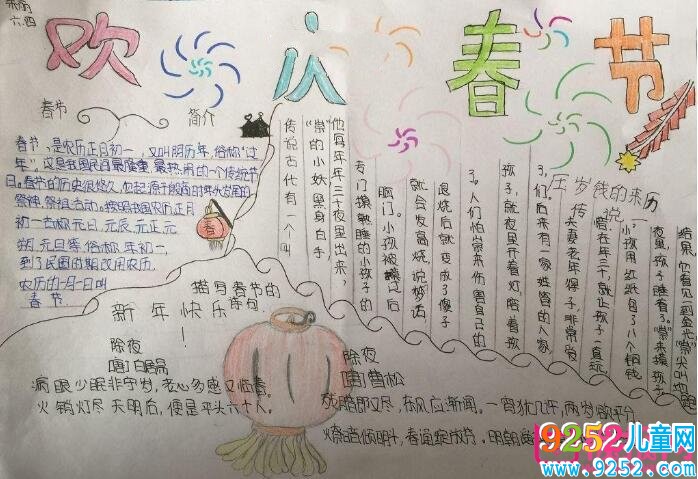 六.四
欢庆春节
春节
简介
春节,是农历正月初一,又叫阴历年,俗称"过
年",这是我国民间最隆重、最热闹的一个传统节
日。春节的历史很悠久,它起源于殷商时年头岁尾的
祭神祭祖活动。按照我国农历,正月
初一古称元日、元辰、元正、元
朔、元旦等,俗称年初一,
到了民国时期改用农历.
农历的一月一日叫
春节
压岁钱的来历
传说
传说古代有一个叫
"祟"的小妖,黑身白手,
他每年年三十夜里出来,
专门摸熟睡的小孩子的
脑门。小孩被摸过后
就会发高烧说梦话
退烧后就变成了傻子
了。人们怕祟来伤害自己的
孩子,就夜里开着灯陪着孩
子们。后来有一家姓管的人家
夫妻老年得子,非常爱
着在年三十,就让孩子一直玩
小孩用红纸包了八个铜钱
夜里,孩子睡着了。"祟"来摸孩子
结果
描写春节的
诗句
新年快乐
除夜
[唐]白居易
病眼少眠非守岁,老心多感又临春。
火销灯尽天明后,便是平头六十人。
除夜
[唐]曹松
残腊即又尽,东风应渐闻。一宵犹几许,两岁欲平分
燎暗倾时斗,春通绽放芬。明朝
9252儿童网
www.9252.com